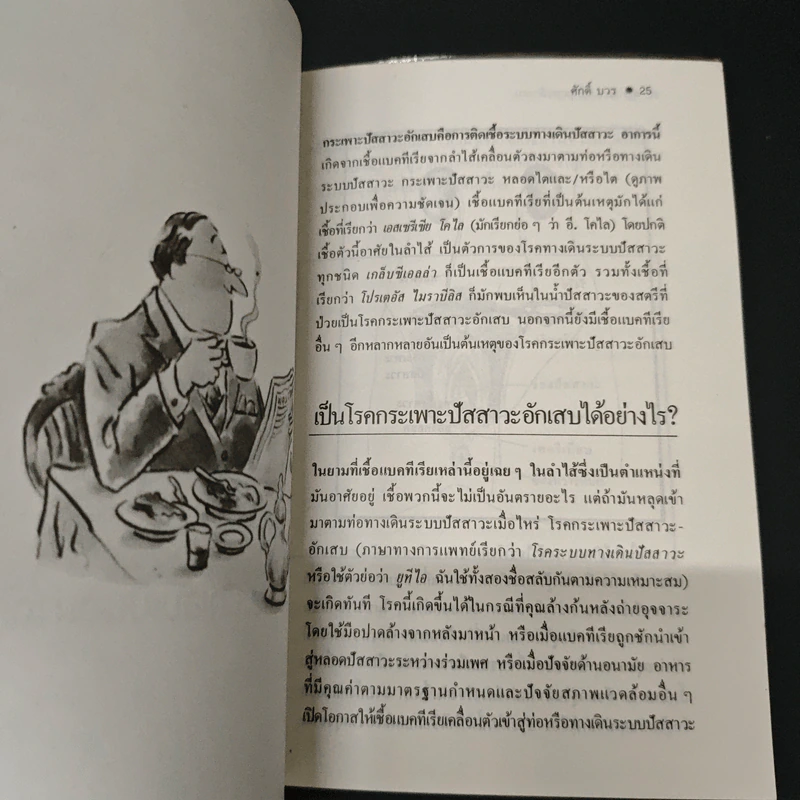 ศักดิ์ บวร • 25
กระเพาะปัสสาวะอักเสบคือการติดเชื้อระบบทางเดินปัสสาวะ อาการนี้
เกิดจากเชื้อแบคทีเรียจากลำไส้เคลื่อนตัวลงมาตามท่อหรือทางเดิน
ระบบปัสสาวะ กระเพาะปัสสาวะ หลอดไตและ/หรือไต (ดูภาพ
ประกอบเพื่อความชัดเจน) เชื้อแบคทีเรียที่เป็นต้นเหตุมักได้แก่
เชื้อที่เรียกว่า เอสเชรีเชีย โคไล (มักเรียกย่อ ๆ ว่า อี. โคไล) โดยปกติ
เชื้อตัวนี้อาศัยในลำไส้ เป็นตัวการของโรคทางเดินระบบปัสสาวะ
ทุกชนิด เกล็บซีเอลล่า ก็เป็นเชื้อแบคทีเรียอีกตัว รวมทั้งเชื้อที่
เรียกว่า โปรเตอัส ไมราบีลิส ก็มักพบเห็นในน้ำปัสสาวะของสตรีที่
ป่วยเป็นโรคกระเพาะปัสสาวะอักเสบ นอกจากนี้ยังมีเชื้อแบคทีเรีย
อื่น ๆ อีกหลากหลายอันเป็นต้นเหตุของโรคกระเพาะปัสสาวะอักเสบ
เป็นโรคกระเพาะปัสสาวะอักเสบได้อย่างไร?
ในยามที่เชื้อแบคทีเรียเหล่านี้อยู่เฉย ๆ ในลำไส้ซึ่งเป็นตำแหน่งที่
มันอาศัยอยู่ เชื้อพวกนี้จะไม่เป็นอันตรายอะไร แต่ถ้ามันหลุดเข้า
มาตามท่อทางเดินระบบปัสสาวะเมื่อไหร่ โรคกระเพาะปัสสาวะ-
อักเสบ (ภาษาทางการแพทย์เรียกว่า โรคระบบทางเดินปัสสาวะ
หรือใช้ตัวย่อว่า ยูทีไอ ฉันใช้ทั้งสองชื่อสลับกันตามความเหมาะสม)
จะเกิดทันที โรคนี้เกิดขึ้นได้ในกรณีที่คุณล้างก้นหลังถ่ายอุจจาระ
โดยใช้มือปาดล้างจากหลังมาหน้า หรือเมื่อแบคทีเรียถูกชักนำเข้า
สู่หลอดปัสสาวะระหว่างร่วมเพศ หรือเมื่อปัจจัยด้านอนามัย อาหาร
ที่มีคุณค่าตามมาตรฐานกำหนดและปัจจัยสภาพแวดล้อมอื่น ๆ
เปิดโอกาสให้เชื้อแบคทีเรียเคลื่อนตัวเข้าสู่ท่อหรือทางเดินระบบปัสสาวะ